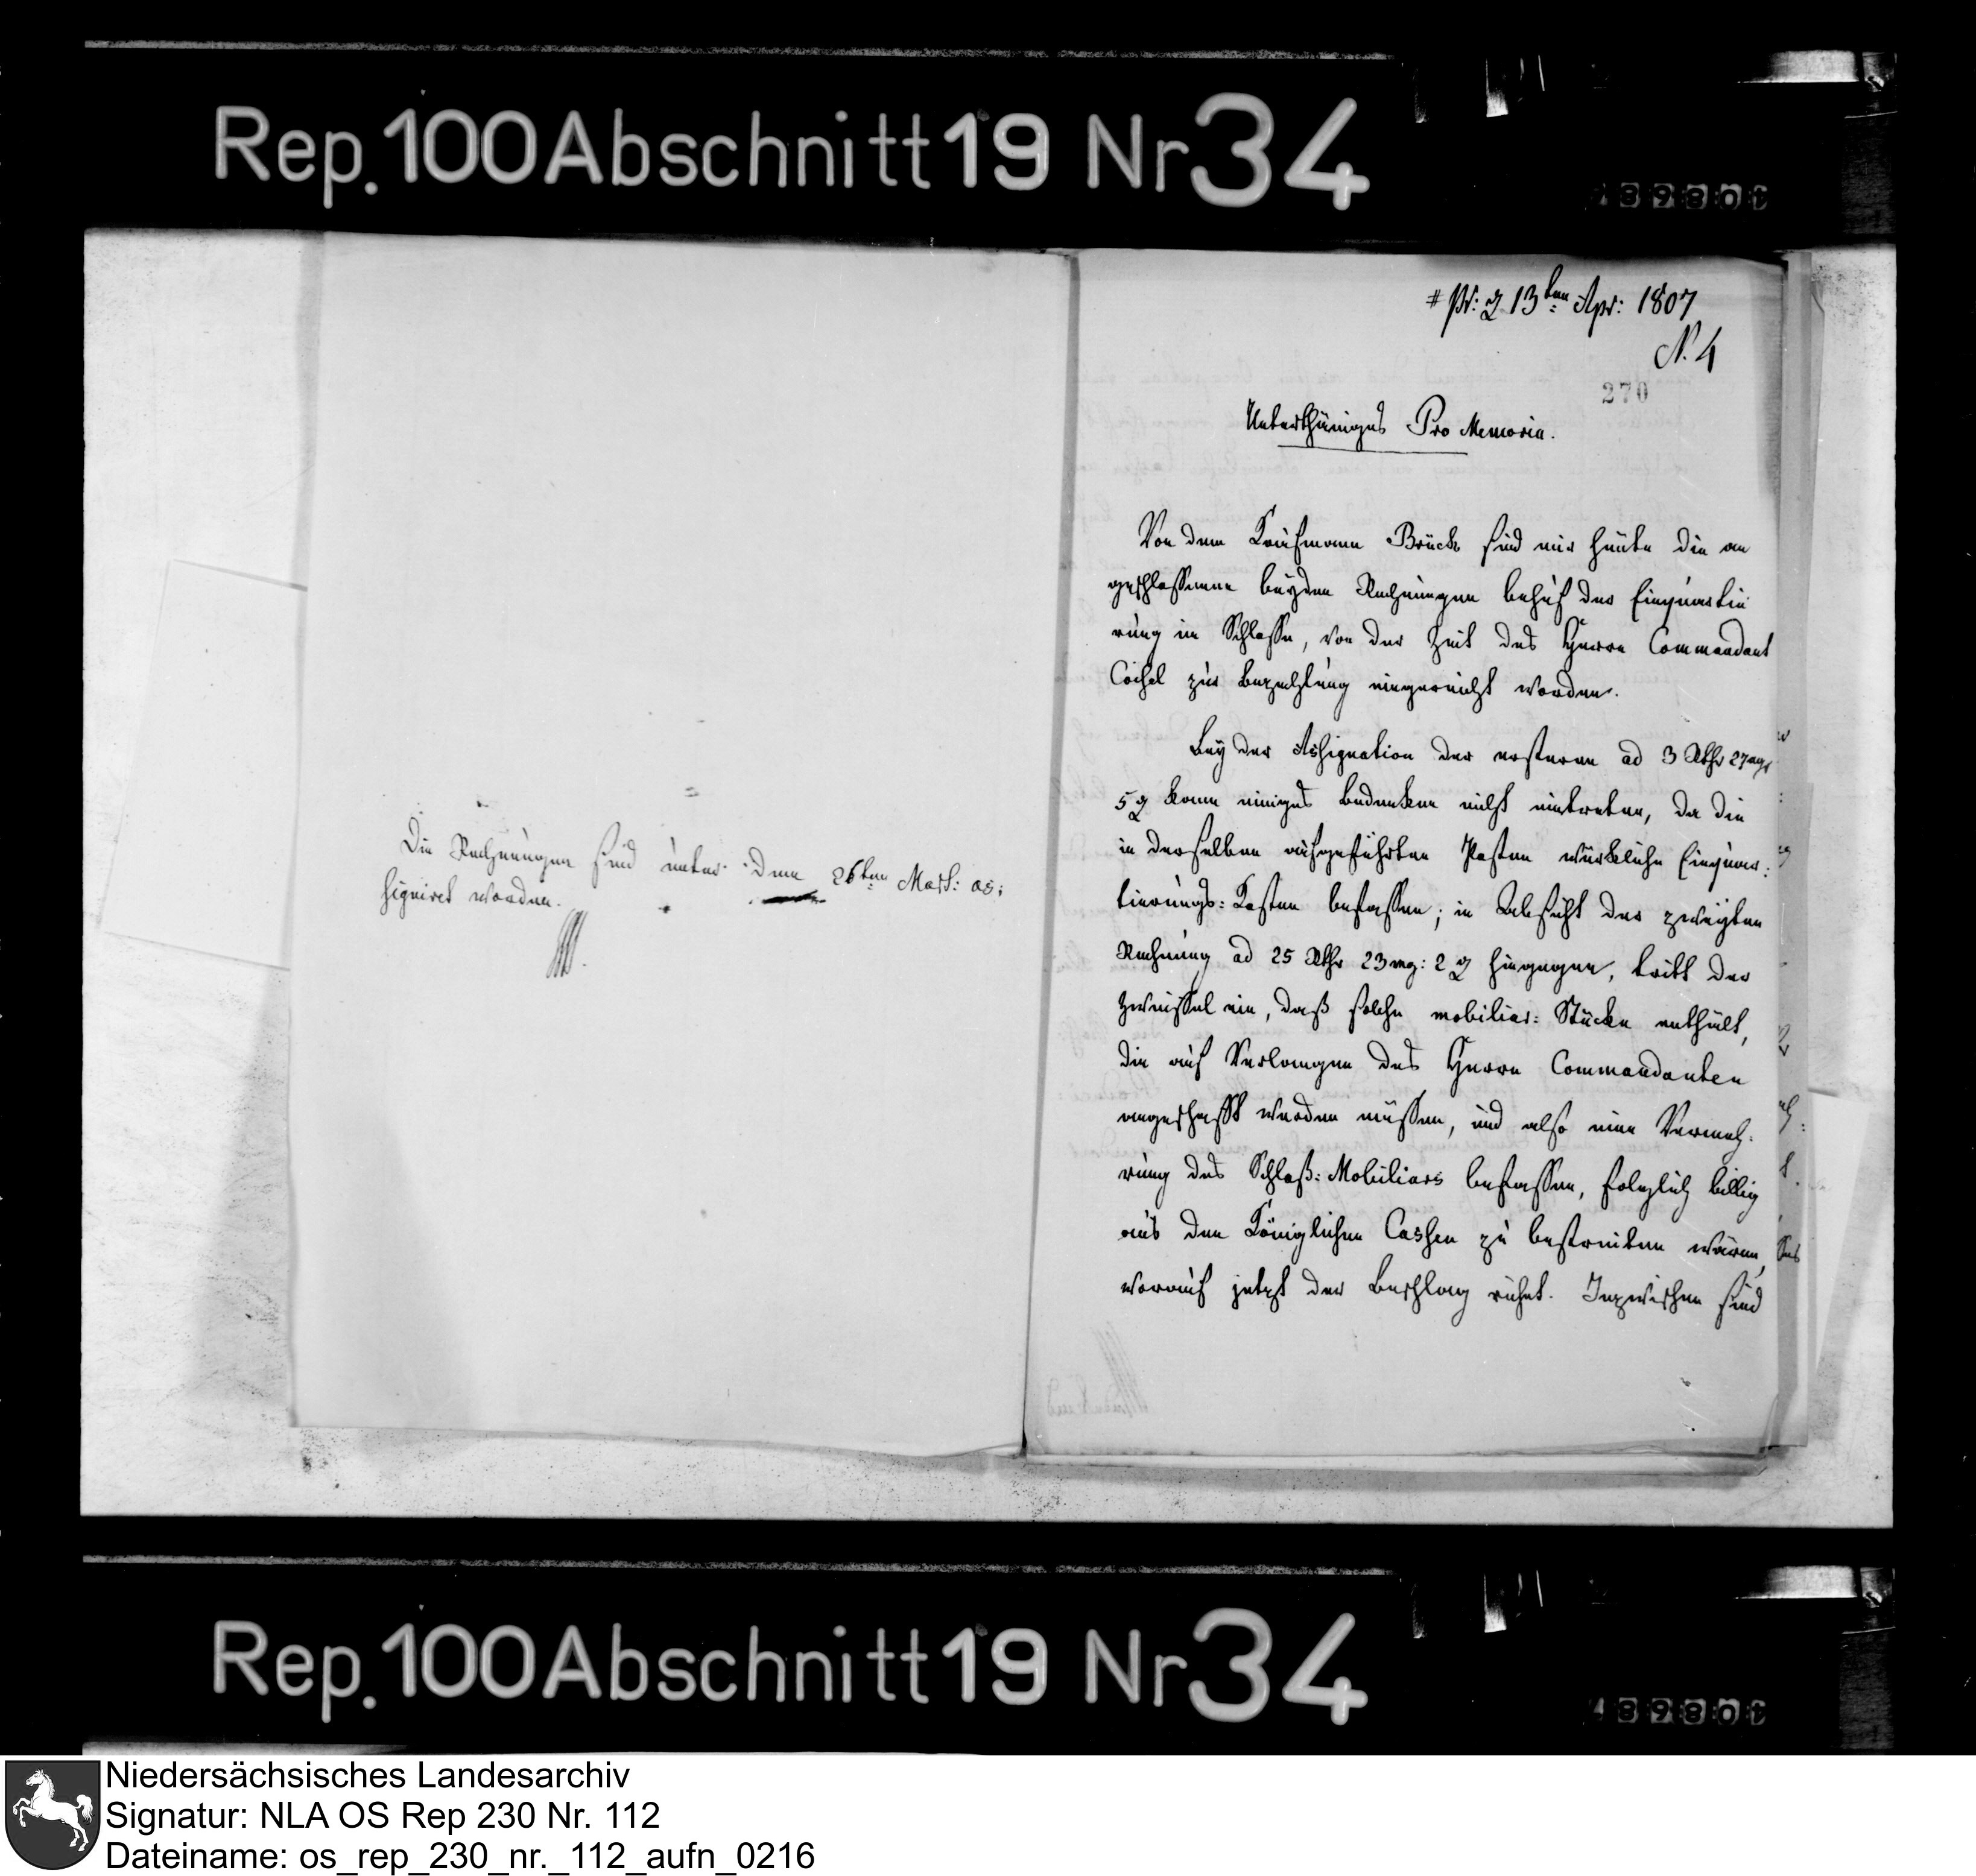 Rep.100 Abschnitt 19 Nr 34
Die Rechnungen sind unter dem 26ten Mart: as:
signiret worden.
# pr: d 13ten Apr: 1807
N. 4
270
Unterthäniges Pro Memoria.
Von dem Kaufmann Brück sind mir heute die an
geschlossenen beyden Rechnungen behuf der Einquartie
rung im Schlosse, von der Zeit des Herrn Commandant
Cochel zur Bezahlung eingereicht worden.
Bey der Assignation der ersteren ad 3 Rthr 27 mgr
5 d kann einiges Bedenken nicht eintreten, da die
in derselben aufgeführten Posten würkliche Einquar:
tierungs: Kosten befassen; in Absicht der zweyten
Rechnung ad 25 Rthr 23 mg: 2 d hingegen, tritt der
Zweiffel ein, daß solche mobiliar: Stücke enthält,
die auf Verlangen des Herrn Commandanten
angeschafft werden müssen, und also eine Vermeh:
rung des Schloß: Mobiliars befassen, folglich billig
aus den Königlichen Cassen zu bestreiten wären,
worauf jetzt der Beschlag ruhet. Inzwischen sind
Rep.100 Abschnitt 19 Nr 34
Niedersächsisches Landesarchiv
Signatur: NLA OS Rep 230 Nr. 112
Dateiname: os_rep_230_nr._112_aufn_0216